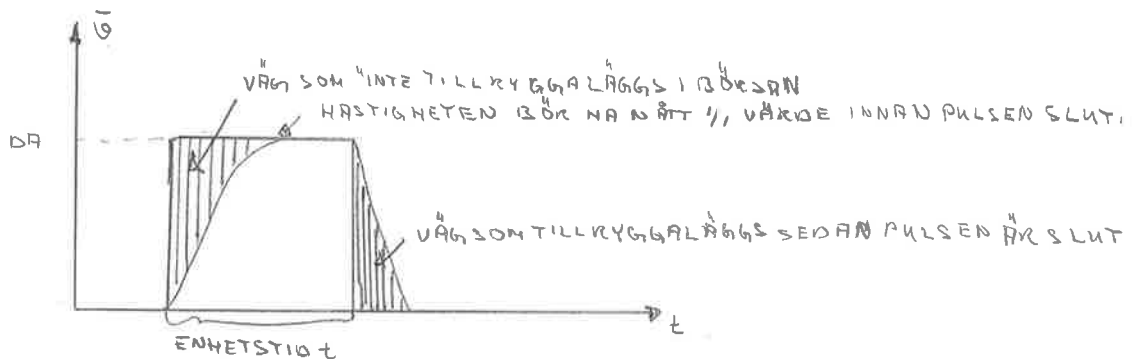 v̄
VÄG SOM "INTE TILLRYGGALÄGGS I BÖRJAN
HASTIGHETEN BÖR HA NÅTT VÄRDE INNAN PULSEN SLUT.
DA
VÄG SOM TILLRYGGALÄGGS SEDAN PULSEN ÄR SLUT
t
ENHETSTID t